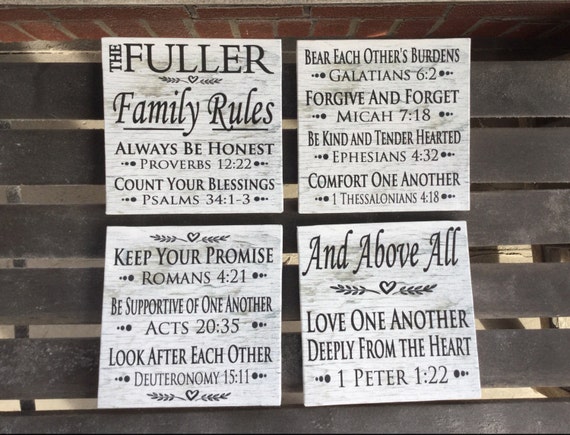 THE FULLER
Family Rules
ALWAYS BE HONEST
PROVERBS 12:22
COUNT YOUR BLESSINGS
PSALMS 34:1-3
BEAR EACH OTHER'S BURDENS
GALATIANS 6:2
FORGIVE AND FORGET
MICAH 7:18
BE KIND AND TENDER HEARTED
EPHESIANS 4:32
COMFORT ONE ANOTHER
1 THESSALONIANS 4:18
KEEP YOUR PROMISE
ROMANS 4:21
BE SUPPORTIVE OF ONE ANOTHER
ACTS 20:35
LOOK AFTER EACH OTHER
DEUTERONOMY 15:11
And Above All
LOVE ONE ANOTHER
DEEPLY FROM THE HEART
1 PETER 1:22